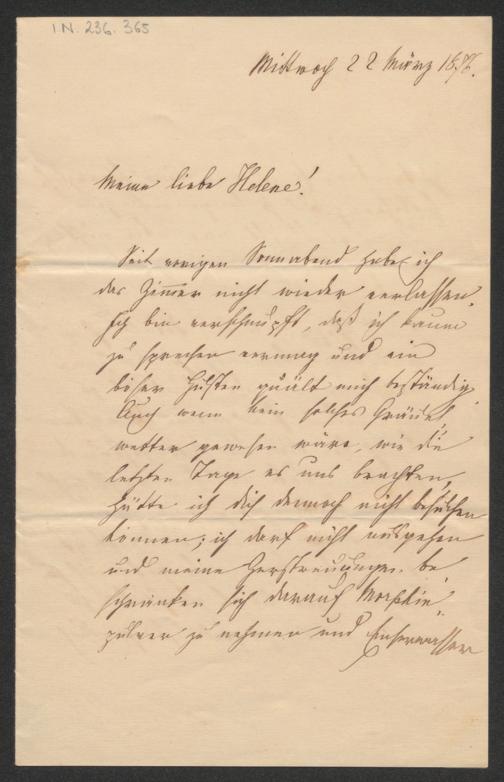 I.N. 236.365
Mittwoch 22 März 1876.
Meine liebe Helene!
Seit vorigen Sonnabend habe ich
das Zimmer nicht wieder verlassen.
Ich bin verschnupft, daß ich kaum
zu sprechen vermag und ein
böser Husten quält mich beständig.
Auch wenn kein solches Gräuel
wetter gewesen wäre, wie die
letzten Tage es uns brachten,
hätte ich dich dennoch nicht besuchen
können; ich darf nicht ausgehen
und meine Zerstreuungen be
schränken sich darauf Morphin
pulver zu nehmen und Emserwasser